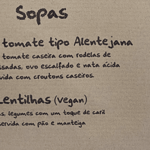 Sopas
tomate tipo Alentejana
tomate caseira com rodelas de
ssadas, ovo escalfado e nata ácida
vida com croutons caseiros
Lentilhas (vegan)
s legumes com um toque de caril
servida com pão e manteiga